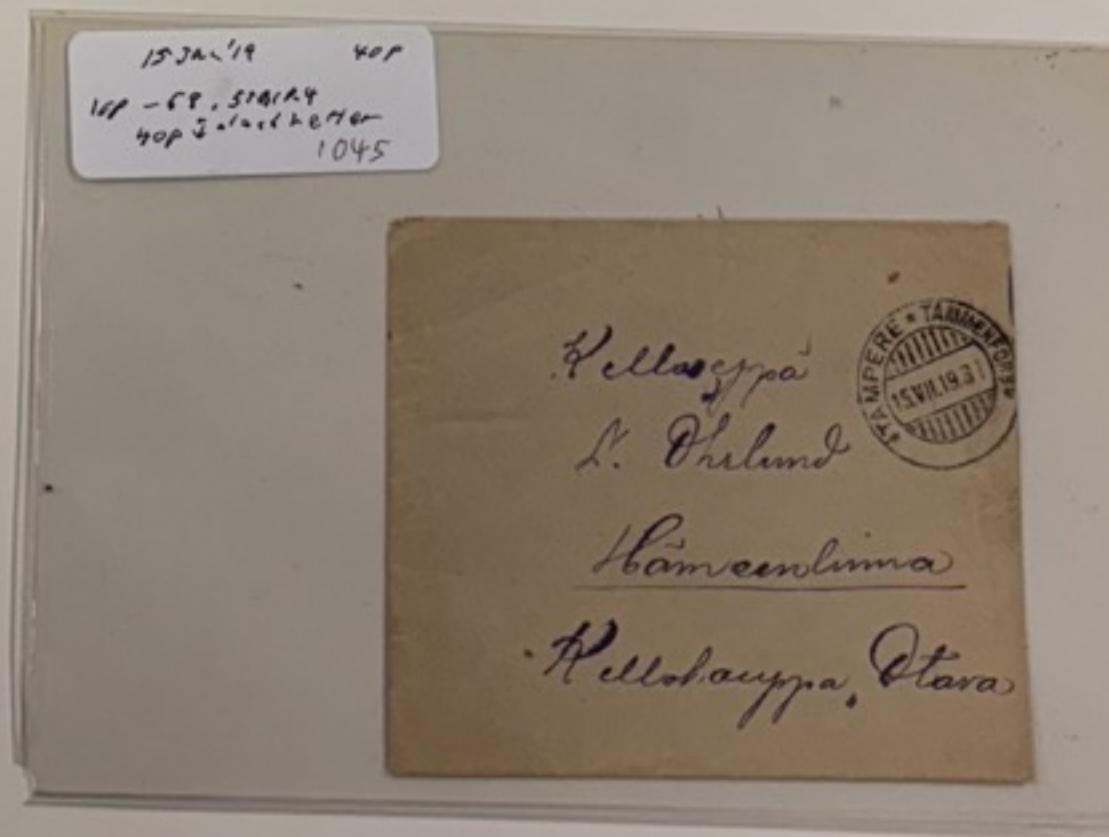 15 Jan '19 40p
10p -
40p Inland letter
1045
TAMPERE * TAMMERFORS
15.VII.19.3
Kelloseppä
L. Öhrlund
Hämeenlinna
Kellokauppa, Otava